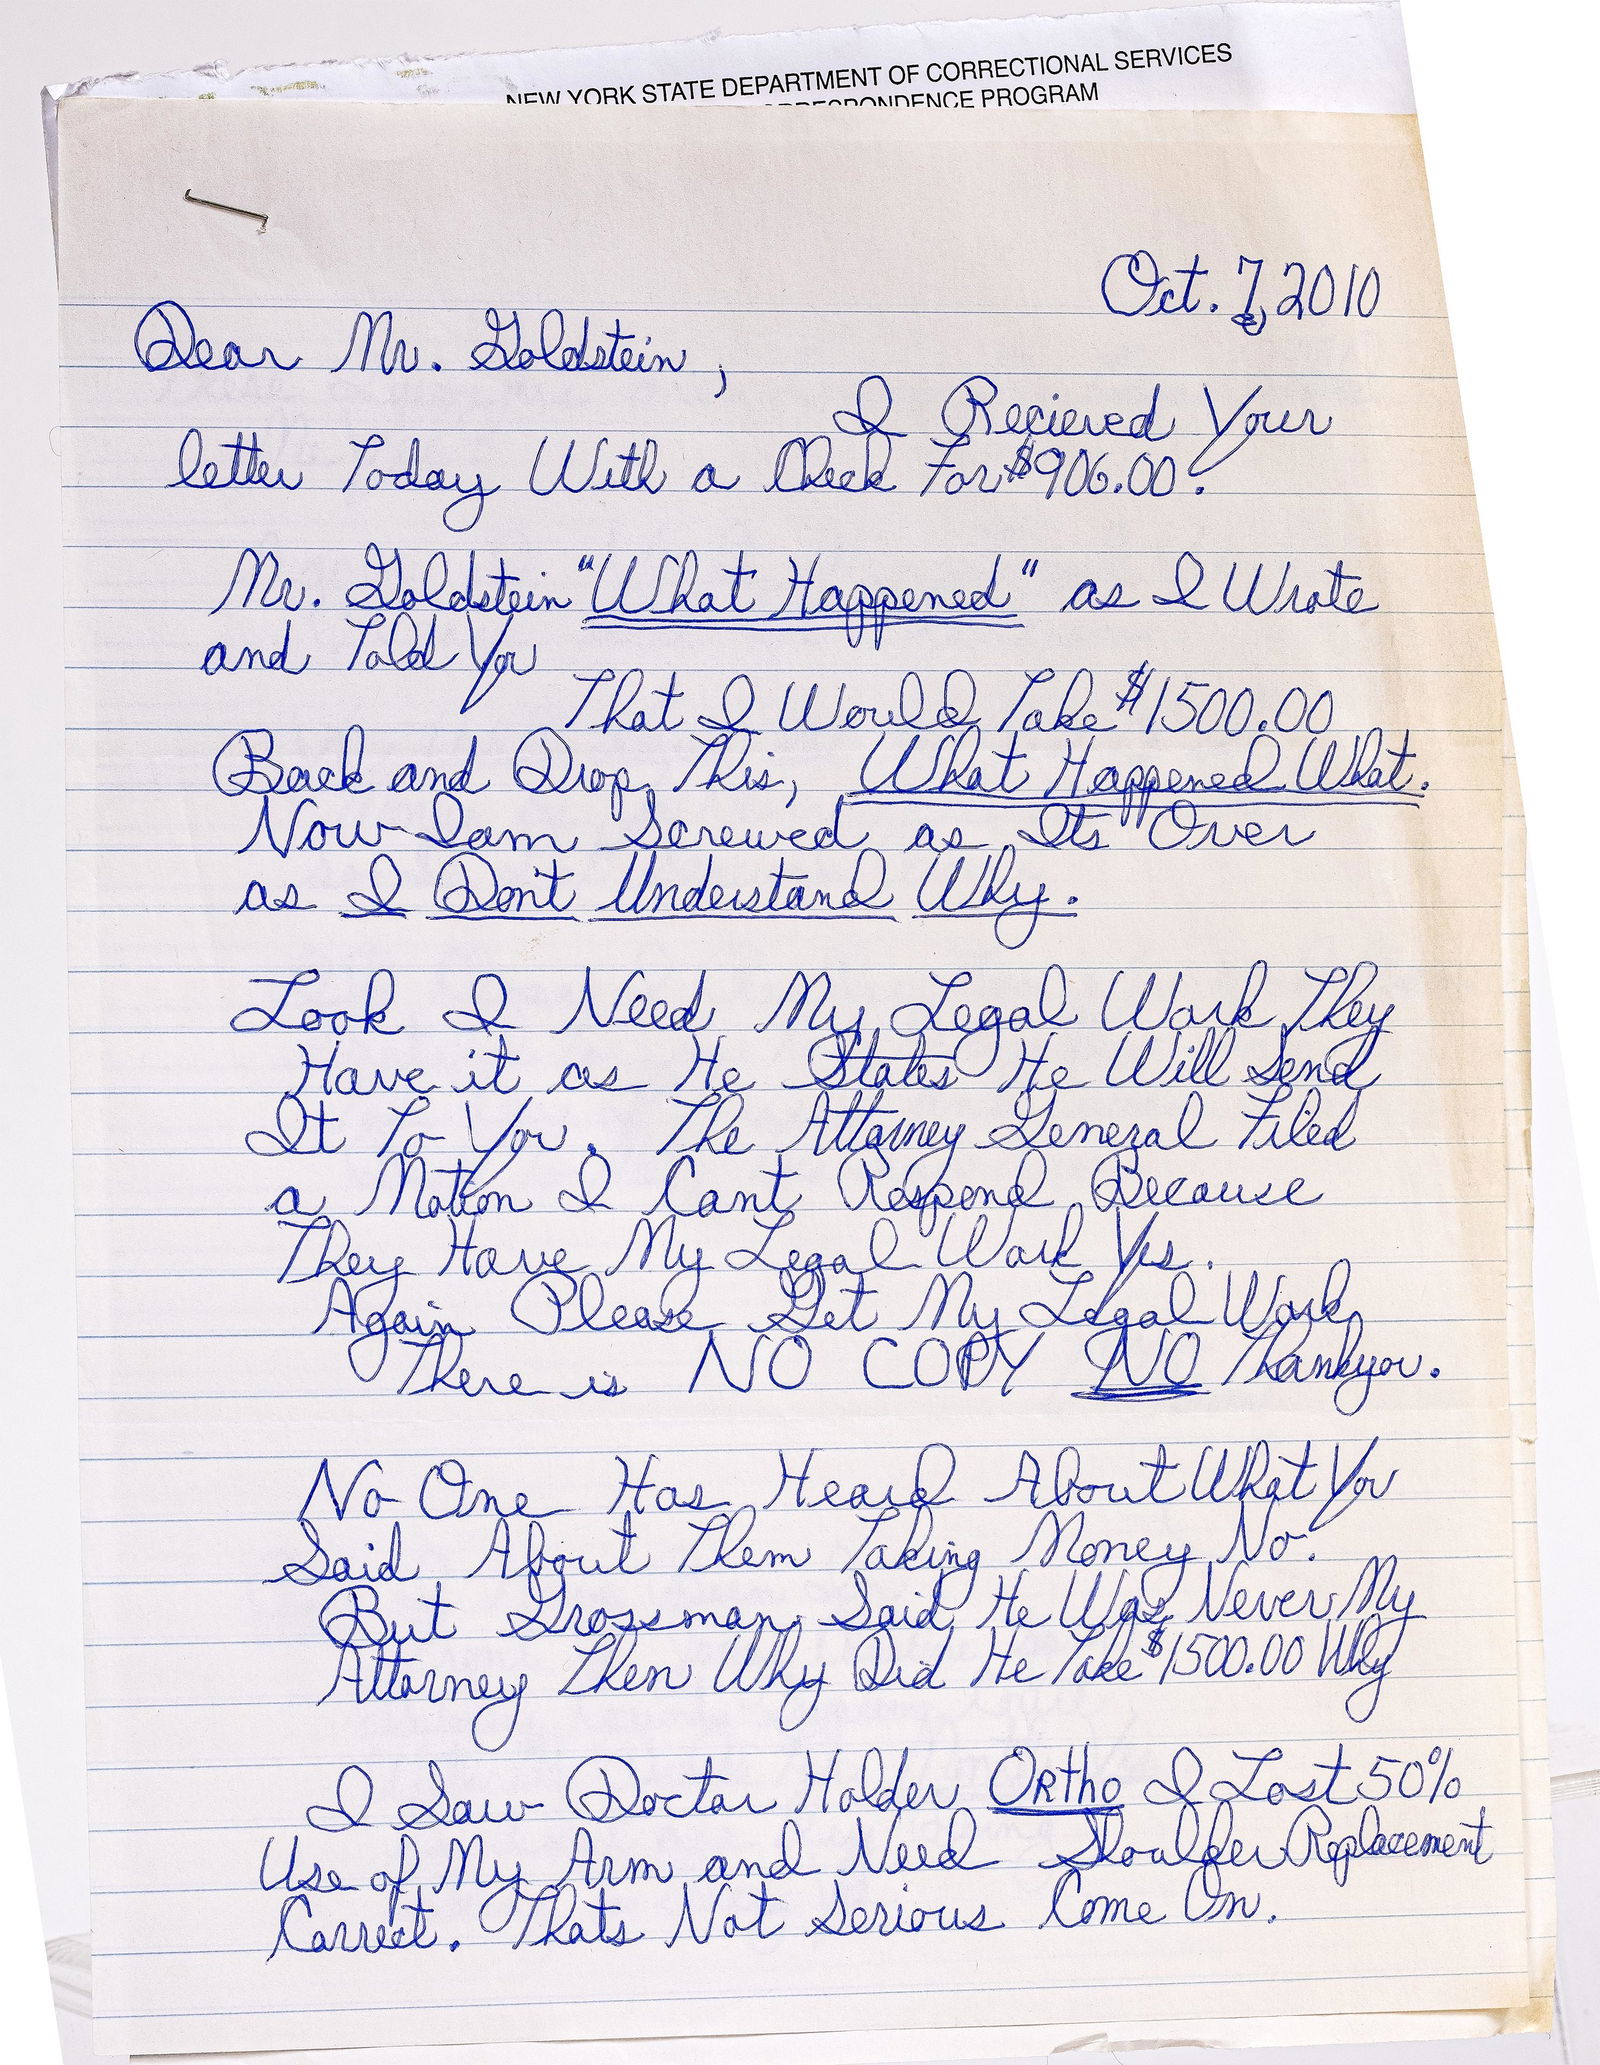 NEW YORK STATE DEPARTMENT OF CORRECTIONAL SERVICES
CORRESPONDENCE PROGRAM
Oct. 7, 2010
Dear Mr. Goldstein,
I Recieved Your
letter Today With a Check For $906.00.
Mr. Goldstein "What Happened" as I Wrote
and Told You
That I Would Take $1500.00
Back and Drop This, What Happened What.
Now I am Screwed as Its Over
as I Don't Understand Why.
Look I Need My Legal Work They
Have it as He States He Will Send
It To You. The Attorney General Filed
a Motion I Cant Respond Because
They Have My Legal Work Yes.
Again Please Get My Legal Work
There is NO COPY NO Thankyou.
No One Has Heard About What You
Said About Them Taking Money No.
But Grossman Said He Was Never My
Attorney Then Why Did He Take $1500.00 Why
I Saw Doctor Holder Ortho I Lost 50%
Use of My Arm and Need Shoulder Replacement
Correct. Thats Not Serious Come On.